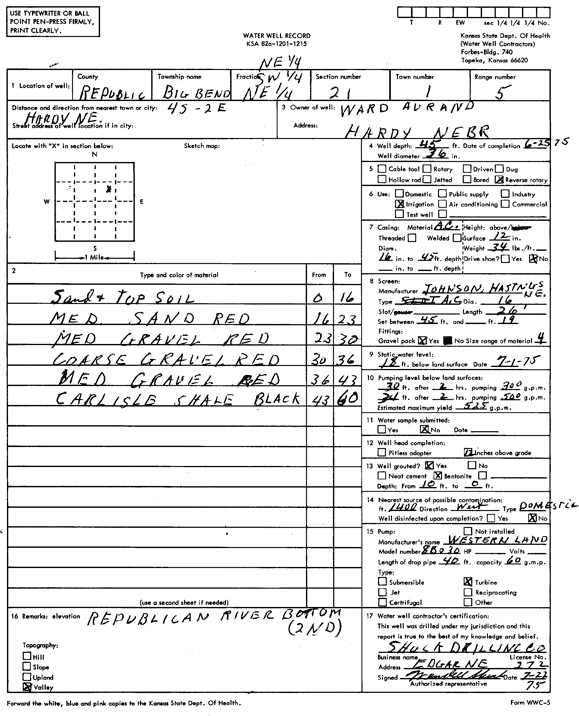 USE TYPEWRITER OR BALL
POINT PEN-PRESS FIRMLY,
PRINT CLEARLY.
T R EW sec 1/4 1/4 1/4 No.
WATER WELL RECORD
KSA 82a-1201-1215
Kansas State Dept. Of Health
(Water Well Contractors)
Forbes-Bldg. 740
Topeka, Kansas 66620
1 Location of well: County REPUBLIC Township name BIG BEND Fraction NE 1/4 SW 1/4 NE 1/4 Section number 21 Town number 1 Range number 5
Distance and direction from nearest town or city: 45-2E
HARDY NE.
Street address of well location if in city:
3 Owner of well: WARD AURAND
Address: HARDY NEBR
Locate with "X" in section below: Sketch map:
N
W E
S
1 Mile
4 Well depth: 45 ft. Date of completion 6-25 75
Well diameter 36 in.
5 Cable tool Rotary Driven Dug
Hollow rod Jetted Bored X Reverse rotary
6 Use: Domestic Public supply Industry
X Irrigation Air conditioning Commercial
Test well
7 Casing: Material A.C. Height: above/below
Threaded Welded Surface 12 in.
Diam. Weight 34 lbs./ft.
16 in. to 45 ft. depth Drive shoe? Yes X No
in. to ft. depth
2 Type and color of material From To
Sand & TOP SOIL 0 16
MED. SAND RED 16 23
MED GRAVEL RED 23 30
COARSE GRAVEL RED 30 36
MED GRAVEL RED 36 43
CARLISLE SHALE BLACK 43 60
(use a second sheet if needed)
8 Screen:
Manufacturer JOHNSON, HASTNGS NE.
Type A.C Dia. 16
Slot/gauze Length 26'
Set between 45 ft. and ft. 19
Fittings:
Gravel pack X Yes No Size range of material 4
9 Static water level:
18 ft. below land surface Date 7-1-75
10 Pumping level below land surfaces:
30 ft. after 2 hrs. pumping 300 g.p.m.
34 ft. after 2 hrs. pumping 500 g.p.m.
Estimated maximum yield 525 g.p.m.
11 Water sample submitted:
Yes X No Date
12 Well head completion:
Pitless adapter 12 Inches above grade
13 Well grouted? X Yes No
Neat cement X Bentonite
Depth: From 10 ft. to 0 ft.
14 Nearest source of possible contamination:
ft. 1400 Direction West Type DOMESTIC
Well disinfected upon completion? Yes X No
15 Pump: Not installed
Manufacturer's name WESTERN LAND
Model number 8B030 HP Volts
Length of drop pipe 40 ft. capacity 60 g.m.p.
Type:
Submersible X Turbine
Jet Reciprocating
Certrifugal Other
16 Remarks: elevation REPUBLICAN RIVER BOTTOM
(2ND)
Topography:
Hill
Slope
Upland
X Valley
17 Water well contractor's certification:
This well was drilled under my jurisdiction and this
report is true to the best of my knowledge and belief.
SHUCK DRILLING CO
Business name License No.
Address EDGAR NE 272
Signed Date 7-22
Authorized representative 75
Forward the white, blue and pink copies to the Kansas State Dept. Of Health.
Form WWC-5